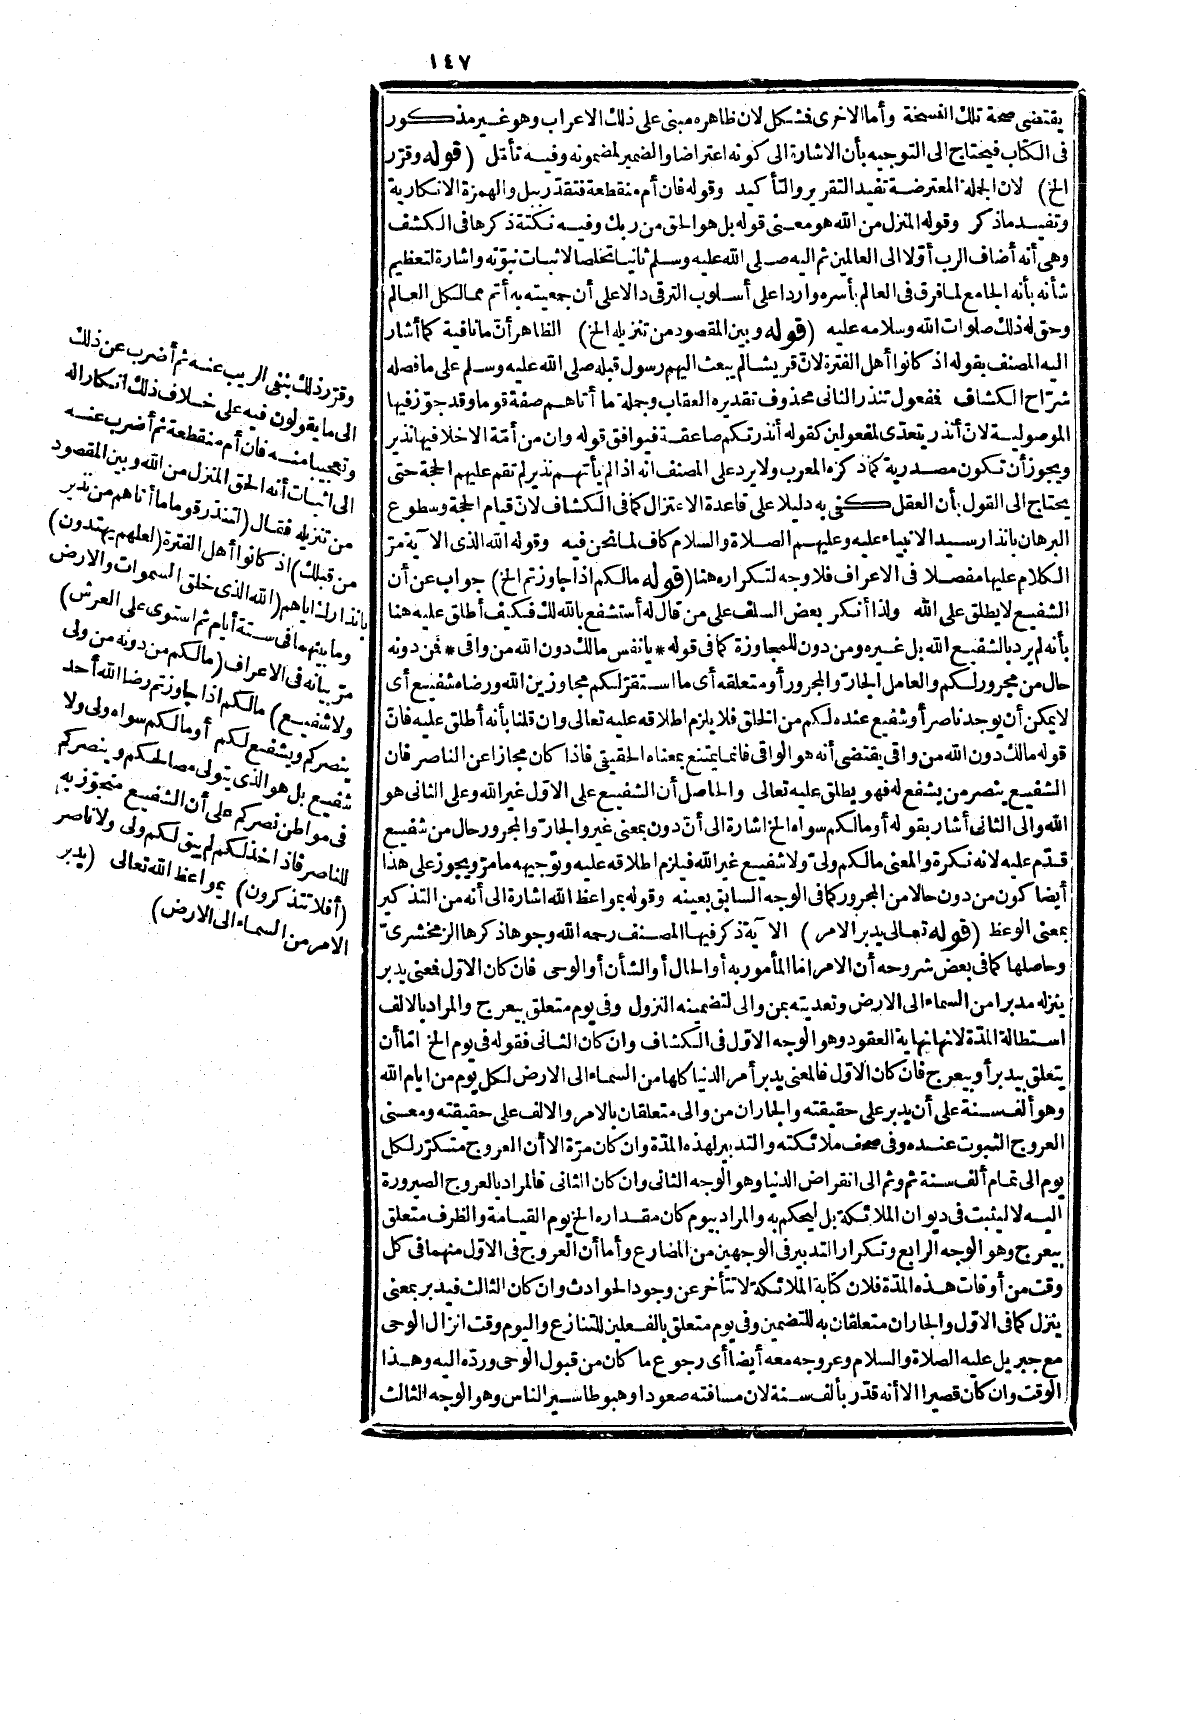 ١٤٧
يقتضى صحة تلك النسخة وأما الاخرى فمشكل لان ظاهره مبنى على ذلك الاعراب وهو غير مذكور
فى الكتاب فيحتاج الى التوجيه بأن الاشارة الى كونه اعتراضا والضمير لمضمونه وفيه تأمّل (قوله وقرّر
الخ) لان الجملة المعترضة تفيد التقرير والتأكيد وقوله فان أم منقطعة فتقدّر ببل والهمزة الانكارية
وتفيد ماذكر وقوله المنزل من الله هو معنى قوله بل هو الحق من ربك وفيه نكتة ذكرها فى الكشف
وهى أنه أضاف الرب أوّلا الى العالمين ثم اليه صلى الله عليه وسلم ثانيا تخلصا لاثبات نبوّته واشارة لتعظيم
شأنه بأنه الجامع لما فرق فى العالم بأسره وارد على أسلوب الترقى دالا على أن جمعيته به أتم مما لكل العالم
وحق له ذلك صلوات الله وسلامه عليه (قوله وبين المقصود من تنزيله الخ) الظاهر أنّ ما نافية كما أشار
اليه المصنف بقوله اذ كانوا أهل الفترة لانّ قريشا لم يبعث اليهم رسول قبله صلى الله عليه وسلم على ما فصله
شرّاح الكشاف ففعول تنذر الثانى محذوف تقديره العقاب وجملة ما أتاهم صفة قوما وقد جوّز فيها
الموصولية لانّ أنذر يتعدّى لمفعولين كقوله أنذرتكم صاعقة فيوافق قوله وان من أمّة الاخلا فيها نذير
ويجوز أن تكون مصدرية كما ذكره المعرب ولا يرد على المصنف انه اذا لم يأتهم نذير لم تقم عليهم الحجة حتى
يحتاج الى القول بأن العقل كفى به دليلا على قاعدة الاعتزال كما فى الكشاف لانّ قيام الحجة وسطوع
البرهان بانذار سيد الانبياء عليه وعليهم الصلاة والسلام كاف لما نحن فيه وقوله الله الذى الآية مرّ
الكلام عليها مفصلا فى الاعراف فلا وجه لتكراره هنا (قوله مالكم اذا جاوزتم الخ) جواب عن أن
الشفيع لا يطلق على الله ولذا أنكر بعض السلف على من قال له أستشفع بالله لك فكيف أطلق عليه هنا
بأنه لم يرد بالشفيع الله بل غيره ومن دون للمجاوزة كما فى قوله * يانفس مالك دون الله من واقى * فمن دونه
حال من مجرور لكم والعامل الجارّ والمجرور أو متعلقه أى ما استقرّ لكم مجاوزين الله ورضاه شفيع أى
لا يمكن أن يوجد ناصر أو شفيع عنده لكم من الخلق فلا يلزم اطلاقه عليه تعالى وان قلنا بأنه أطلق عليه فانّ
قوله مالك دون الله من واقى يقتضى أنه هو الواقى فانما يمتنع بمعناه الحقيقى فاذا كان مجازا عن الناصر فان
الشفيع ينصر من يشفع له فهو يطلق عليه تعالى والحاصل أن الشفيع على الاوّل غير الله وعلى الثانى هو
الله والى الثانى أشار بقوله أو مالكم سواه الخ اشارة الى أنّ دون بمعنى غير والجارّ والمجرور حال من شفيع
قدّم عليه لانه نكرة والمعنى مالكم ولىّ ولا شفيع غير الله فيلزم اطلاقه عليه وتوجيهه مامرّ ويجوز على هذا
أيضا كون من دون حالا من المجرور كما فى الوجه السابق بعينه وقوله بمواعظ الله اشارة الى أنه من التذكير
بمعنى الوعظ (قوله تعالى يدبر الامر) الآية ذكر فيها المصنف رحمه الله وجوها ذكرها الزمخشرىّ
وحاصلها كما فى بعض شروحه أن الامر اما المأمور به أو الحال أو الشأن أو الوحى فان كان الاوّل فمعنى يدبر
ينزله مدبرا من السماء الى الارض وتعديته بمن والى لتضمينه النزول وفى يوم متعلق بيعرج والمراد بالالف
استطالة المدّة لانها نهاية العقود وهو الوجه الاوّل فى الكشاف وان كان الثانى فقوله فى يوم الخ امّا أن
يتعلق بيدبر أو بيعرج فان كان الاوّل فالمعنى يدبر أمر الدنيا كلها من السماء الى الارض لكل يوم من ايام الله
وهو ألف سنة على أن يدبر على حقيقته والجاران من والى متعلقان بالامر والالف على حقيقته ومعنى
العروج الثبوت عنده وفى صحف ملائكته والتدبير لهذه المدّة وان كان مرّة الا أن العروج متكرّر لكل
يوم الى تمام ألف سنة ثم وثم الى انقراض الدنيا وهو الوجه الثانى وان كان الثانى فالمراد بالعروج الصيرورة
اليه لا ليثبت فى ديوان الملائكة بل ليحكم به والمراد بيوم كان مقداره الخ يوم القيامة والظرف متعلق
بيعرج وهو الوجه الرابع وتكرار التدبير فى الوجهين من المضارع وأما أن العروج فى الاوّل منهما فى كل
وقت من أوقات هذه المدّة فلان كتابة الملائكة لا تتأخر عن وجود الحوادث وان كان الثالث فيدبر بمعنى
ينزل كما فى الاوّل والجاران متعلقان به للتضمين وفى يوم متعلق بالفعلين للتنازع واليوم وقت انزال الوحى
مع جبريل عليه الصلاة والسلام وعروجه معه أيضا أى رجوع ما كان من قبول الوحى وردّه اليه وهذا
الوقت وان كان قصيرا الا أنه قدّر بألف سنة لان مسافته صعودا وهبوطا سير الناس وهو الوجه الثالث
وقرّر ذلك بنفى الريب عنه ثم أضرب عن ذلك
الى ما يقولون فيه على خلاف ذلك انكارا له
وتعجيبا منه فان أم منقطعة ثم أضرب عنه
الى اثبات أنه الحق المنزل من الله وبين المقصود
من تنزيله فقال (لتنذر قوما ما أتاهم من نذير
من قبلك) اذ كانوا أهل الفترة (لعلهم يهتدون)
بانذارك اياهم (الله الذى خلق السموات والارض
وما بينهما فى ستة أيام ثم استوى على العرش)
مرّ بيانه فى الاعراف (مالكم من دونه من ولى
ولا شفيع) مالكم اذا جاوزتم رضا الله أحد
ينصركم ويشفع لكم أو مالكم سواه ولى ولا
شفيع بل هو الذى يتولى مصالحكم وينصركم
فى مواطن نصركم على أن الشفيع متجوّز به
للناصر فاذا خذلكم لم يبق لكم ولى ولا ناصر
(أفلا تتذكرون) بمواعظ الله تعالى (يدبر
الامر من السماء الى الارض)